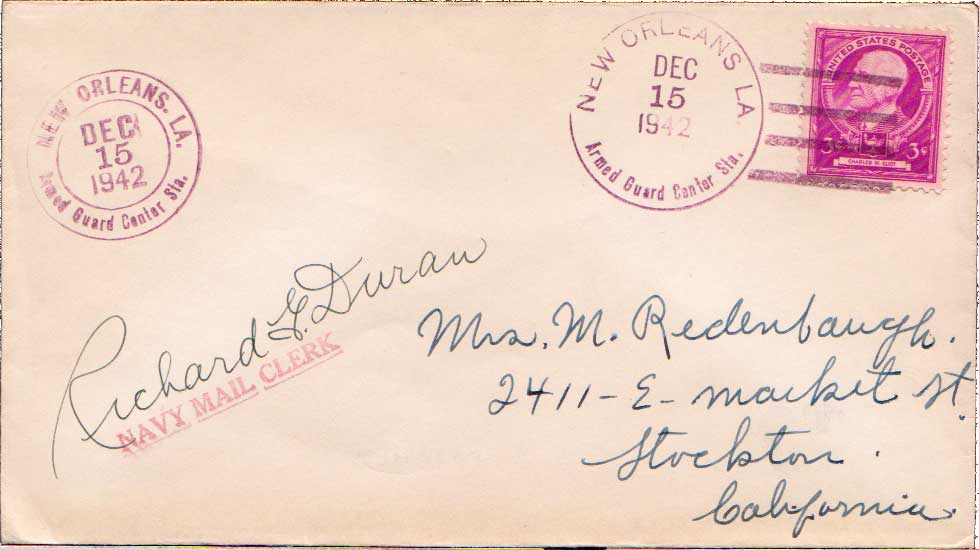 NEW ORLEANS. LA.
DEC
15
1942
Armed Guard Center Sta.
NEW ORLEANS LA.
DEC
15
1942
Armed Guard Center Sta.
UNITED STATES POSTAGE
3 3¢
CHARLES W. ELIOT
Richard G. Duran
NAVY MAIL CLERK
Mrs. M. Redenbaugh.
2411-E- market St.
Stockton.
California.